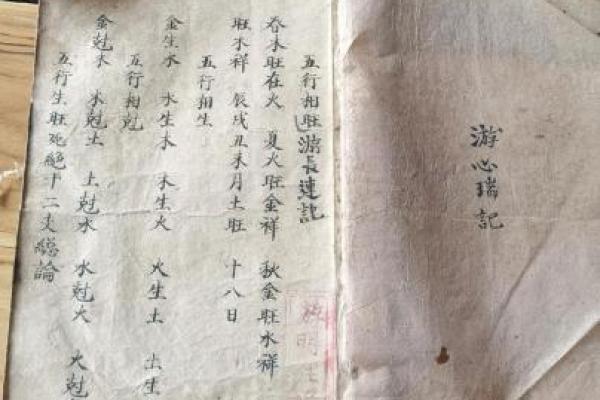 游心瑞記
五行相旺游長連記
春木旺在火 夏火旺金祥 秋金旺水祥
旺木祥 辰戌丑未月土旺 十八日
五行相生
金生水 水生木 木生火 火生土 土生
五行相尅
金尅木 木尅土 土尅水 水尅火 火尅
五行生旺死絕十二支總論